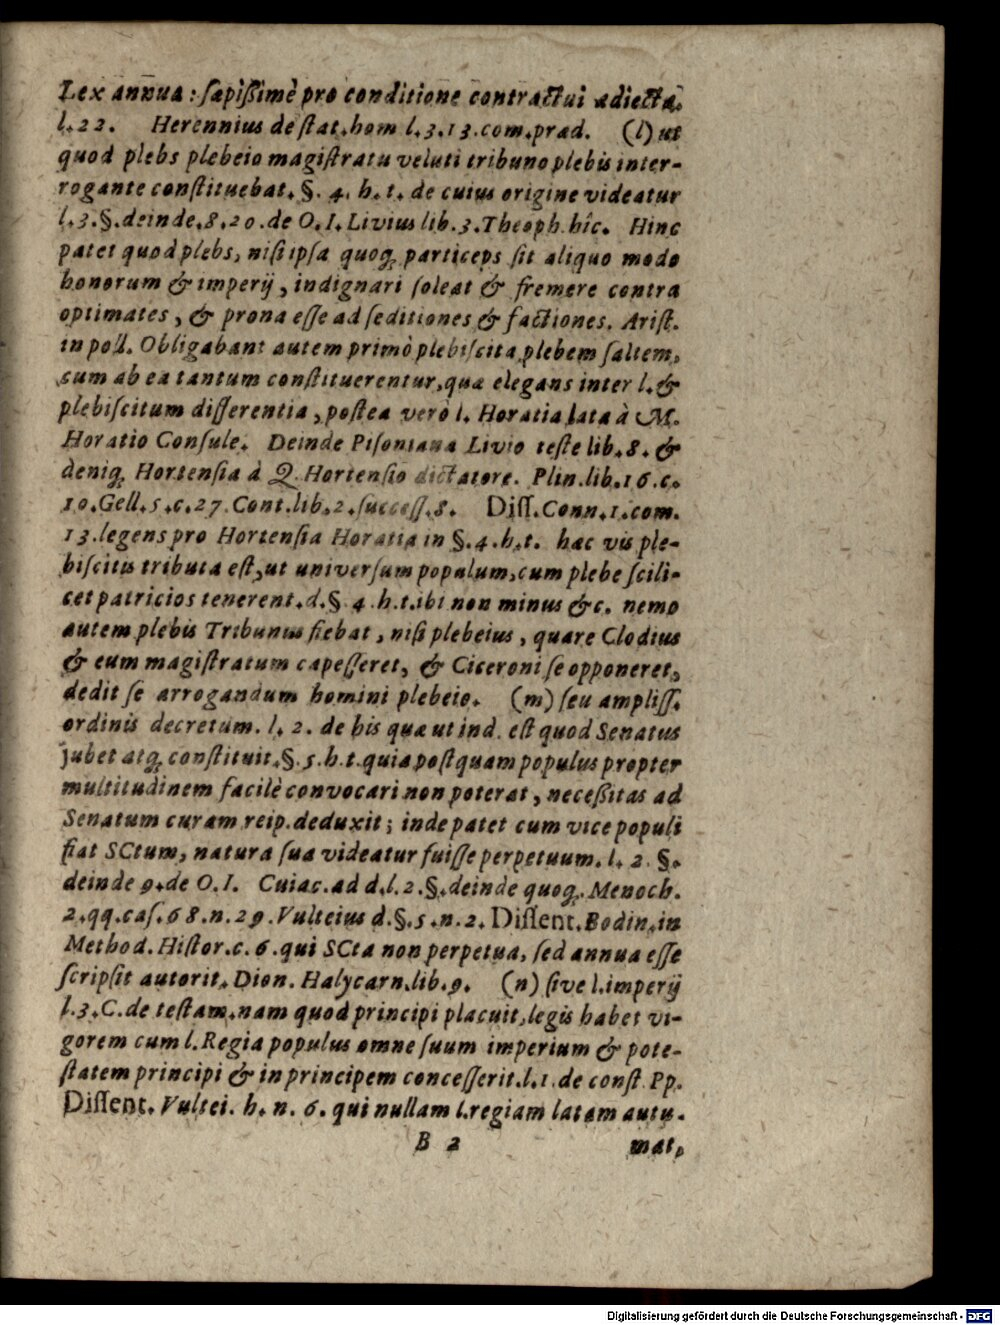 Lex annua: sæpissimè pro conditione contractui adiecta.
l.22. Herennius de stat.hom l.3.13.com.præd. (l) ut
quod plebs plebeio magistratu veluti tribuno plebis inter-
rogante constituebat. §. 4. h.t. de cuius origine videatur
l.3.§.deinde.8.20.de O.I. Livius lib.3.Theoph.hîc. Hinc
patet quod plebs, nisi ipsa quoq; particeps sit aliquo modo
honorum & imperij, indignari soleat & fremere contra
optimates, & prona esse ad seditiones & factiones. Arist.
in poll. Obligabant autem primò plebiscita plebem saltem,
cum ab ea tantum constituerentur, quæ elegans inter l. &
plebiscitum differentia, postea verò l. Horatia lata à M.
Horatio Consule. Deinde Pisoniana Livio teste lib.8. &
deniq; Hortensia à Q. Hortensio dictatore. Plin.lib.16.c.
10.Gell.5.c.27.Cont.lib.2.success.8. Diss.Conn.1.com.
13.legens pro Hortensia Horatia in §.4.h.t. hac vis ple-
biscitis tributa est, ut universum populum, cum plebe scili-
cet patricios tenerent.d.§.4.h.t.ibi non minus &c. nemo
autem plebis Tribunus fiebat, nisi plebeius, quare Clodius
& eum magistratum capesseret, & Ciceroni se opponeret,
dedit se arrogandum homini plebeio. (m) seu ampliss.
ordinis decretum. l. 2. de his quæ ut ind. est quod Senatus
jubet atq; constituit.§.5.h.t.quia postquam populus propter
multitudinem facilè convocari non poterat, necessitas ad
Senatum curam reip.deduxit; inde patet cum vice populi
fiat SCtum, natura sua videatur fuisse perpetuum. l. 2. §.
deinde 9.de O.I. Cuiac.ad d.l.2.§.deinde quoq;. Menoch.
2.qq.cas.68.n.29.Vulteius d.§.5.n.2.Dissent.Bodin.in
Method.Histor.c.6.qui SCta non perpetua, sed annua esse
scripsit autorit. Dion. Halycarn.lib.9. (n) sive l.imperij
l.3.C.de testam.nam quod principi placuit, legis habet vi-
gorem cum l.Regia populus omne suum imperium & pote-
statem principi & in principem concesserit.l.1.de const.Pp.
Dissent. Vultei. h. n. 6. qui nullam l.regiam latam autu-
B 2 mat,
Digitalisierung gefördert durch die Deutsche Forschungsgemeinschaft - DFG